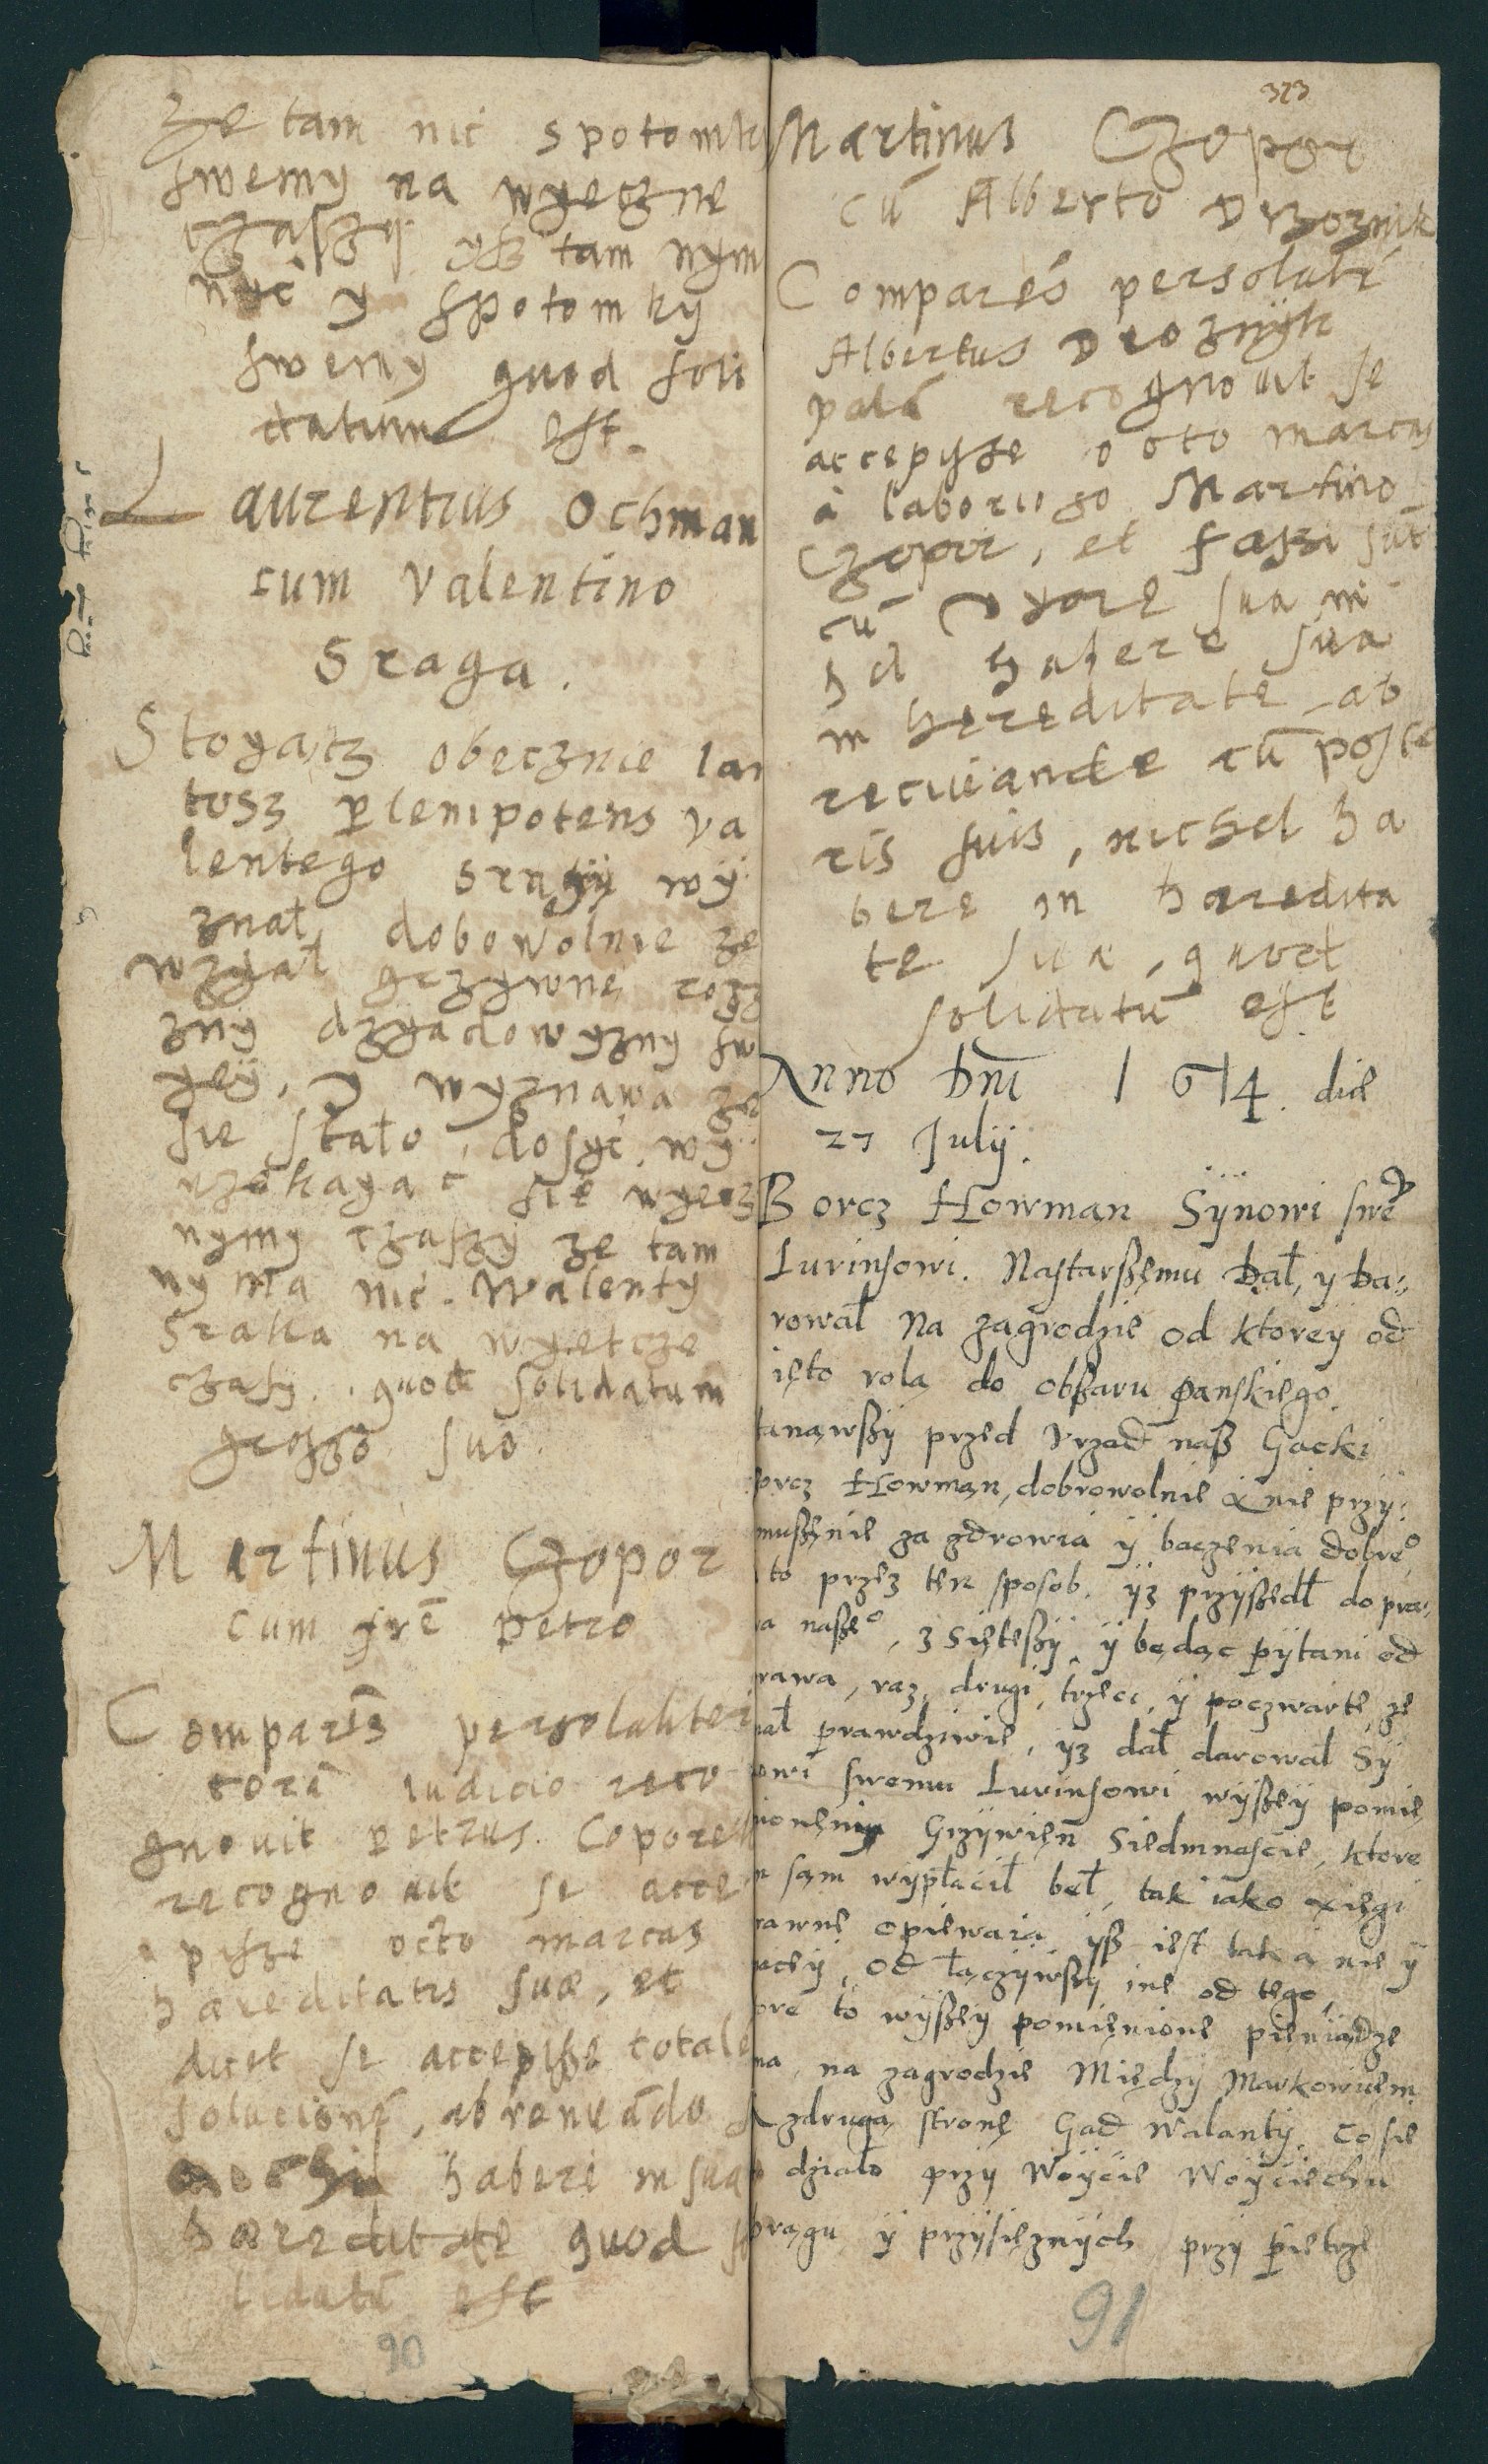 ze tam nic spotomk
swemy na wyeczne
czaszy ysz tam nym
nyc y spotomky
swemy quod soli
datum est.
Laurentius Ochman
cum Valentino
Sraga.
Stoyatz obecznie lan
tosz plenipotens va
lentego wy
znal dobowolnie ze
wzyal grzywne
zny dzyadowyzny sw
yey, y wyznawa ze
sie stalo dosyc. wy
rzekayac sie wyecz
nymy czaszy ze tam
ny ma nic. Walenty
Sraka na wyetcze
czasy. quod solidatum
suo.
Martinus Czopor
cum frē Petro
Comparēs
corā iudicio reco
gnovit Petrus. Copore
recognovit se acce
pisze octo marcas
hæreditatis suæ, et
dicet se accepisze totale
solucionē,
haberi in sua
hæreditate quod so
lidatū est
90
323
Martinus Czopor
cū Alberto Drzoznik
Comparēs
Albertus Droznyk
palā recognovit se
accepysze octo marcas
a laborioso Martino
Czopor, et faszi sūt
cū vxore sua ni
hil habere sua
in hereditate ab
cū poste
ris suis, nichel ha
bere in hæredita
te sua, quod
solidatū est
Anno Dnī 1614. die
27 Julij.
Borcz Howman Synowi sweᵒ
Lurinsowi. Nastarßęmu Dał, y da-
rował Na zagrodzie od ktorey od
ięto rolą do obßaru Panskiego.
tanąwßy przed Vrząd naß Gacki
orcz Howman, dobrowolnie & nie przy-
mußęnie za zdrowia y baczenia dobreᵒ
to przez ten sposob. yz przyßedł do pra-
a naßeᵒ, z Sięteßy, y będąc pytani od
rawa, raz, drugi, trzeci, y poczwarte, ze
nał prawdziwie, yz dał darował Sy
owi swemu Lurinsowi wyßey pomie
nionęmu Grzywien Siedmnascie, ktore
sąm wypłacił beł, tak iako xięgi
rawne opiewaią yß iest tak a nie y
aczey, od łączywßy ine od tego,
ore to wyßey pomięnione pieniądze
ma, na zagrodzie Między Markowiem
& zdrugą stronę Gad Walanty. Co sie
działo przy Woycie Woyciechu
prągu y przysięznych przy Pietrze
91